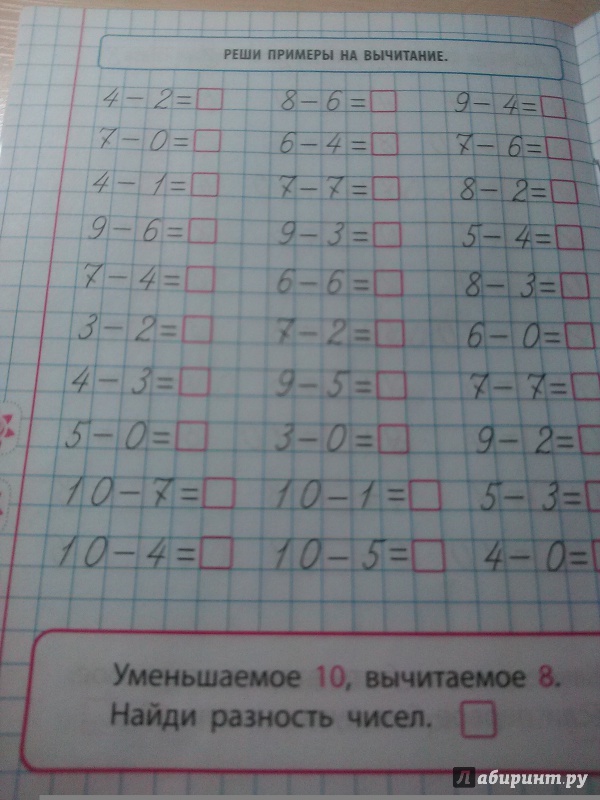 РЕШИ ПРИМЕРЫ НА ВЫЧИТАНИЕ.
4 – 2 = 8 – 6 = 9 – 4 =
7 – 0 = 6 – 4 = 7 – 6 =
4 – 1 = 7 – 7 = 8 – 2 =
9 – 6 = 9 – 3 = 5 – 4 =
7 – 4 = 6 – 6 = 8 – 3 =
3 – 2 = 7 – 2 = 6 – 0 =
4 – 3 = 9 – 5 = 7 – 7 =
5 – 0 = 3 – 0 = 9 – 2 =
10 – 7 = 10 – 1 = 5 – 3 =
10 – 4 = 10 – 5 = 4 – 0 =
Уменьшаемое 10, вычитаемое 8.
Найди разность чисел.
Лабиринт.ру